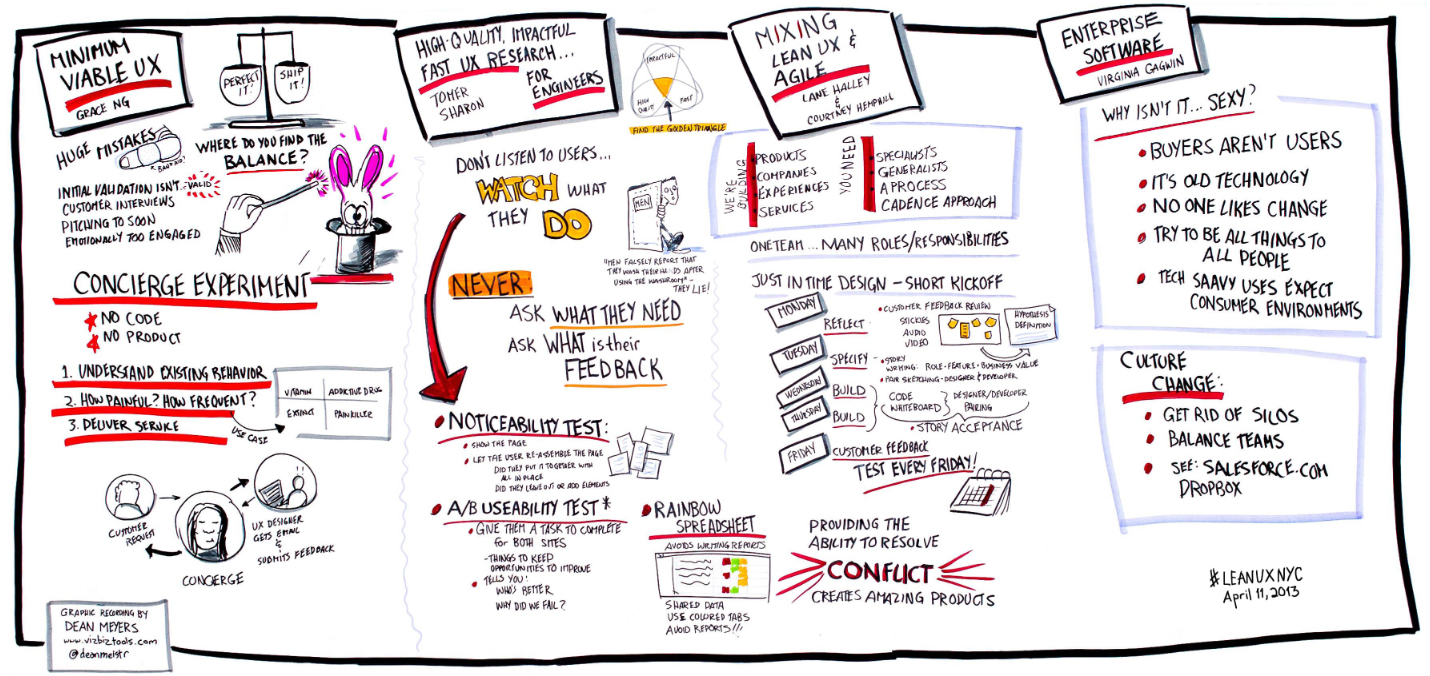 MINIMUM
VIABLE UX
GRACE NG
PERFECT
IT!
SHIP
IT!
HUGE MISTAKES
WHERE DO YOU FIND THE
BALANCE?
INITIAL VALIDATION ISN'T... VALID
CUSTOMER INTERVIEWS
PITCHING TO SOON
EMOTIONALLY TOO ENGAGED
CONCIERGE EXPERIMENT
NO CODE
NO PRODUCT
1. UNDERSTAND EXISTING BEHAVIOR
2. HOW PAINFUL? HOW FREQUENT?
3. DELIVER SERVICE
USE CASE
VITAMIN
ADDICTIVE DRUG
EXTINCT
PAINKILLER
CUSTOMER
REQUEST
UX DESIGNER
GETS EMAIL
&
SUBMITS FEEDBACK
CONCIERGE
GRAPHIC RECORDING BY
DEAN MEYERS
www.vizbiztools.com
@deanmeistr
HIGH-QUALITY, IMPACTFUL
FAST UX RESEARCH...
FOR
ENGINEERS
TOMER
SHARON
IMPACTFUL
HIGH
QUALITY
FAST
FIND THE GOLDEN TRIANGLE
DON'T LISTEN TO USERS...
WATCH WHAT
THEY DO
MEN
"MEN FALSELY REPORT THAT
THEY WASH THEIR HANDS AFTER
USING THE WASHROOM" -
THEY LIE!
NEVER
ASK WHAT THEY NEED
ASK WHAT is their
FEEDBACK
NOTICEABILITY TEST:
SHOW THE PAGE
LET THE USER RE-ASSEMBLE THE PAGE
DID THEY PUT IT TOGETHER WITH
ALL IN PLACE
DID THEY LEAVE OUT OR ADD ELEMENTS
A/B USEABILITY TEST *
GIVE THEM A TASK TO COMPLETE
for BOTH SITES
-THINGS TO KEEP
OPPORTUNITIES TO IMPROVE
TELLS YOU!
WHO'S BETTER
WHY DID WE FAIL?
RAINBOW
SPREADSHEET
AVOIDS WRITING REPORTS
SHARED DATA
USE COLORED TABS
AVOID REPORTS!!!
MIXING
LEAN UX &
AGILE
LANE HALLEY
&
COURTNEY HEMPHILL
WE'RE
BUILDING
PRODUCTS
COMPANIES
EXPERIENCES
SERVICES
YOU NEED
SPECIALISTS
GENERALISTS
A PROCESS
CADENCE APPROACH
ONE TEAM... MANY ROLES/RESPONSIBILITIES
JUST IN TIME DESIGN - SHORT KICKOFF
MONDAY
REFLECT:
CUSTOMER FEEDBACK REVIEW
STICKIES
AUDIO
VIDEO
HYPOTHESIS
DEFINITION
TUESDAY
SPECIFY - STORY
WRITING: ROLE-FEATURE-BUSINESS VALUE
PAIR SKETCHING-DESIGNER & DEVELOPER
WEDNESDAY
BUILD
THURSDAY
BUILD
CODE
WHITEBOARD
DESIGNER/DEVELOPER
PAIRING
STORY ACCEPTANCE
FRIDAY
CUSTOMER FEEDBACK
TEST EVERY FRIDAY!
PROVIDING THE
ABILITY TO RESOLVE
CONFLICT
CREATES AMAZING PRODUCTS
ENTERPRISE
SOFTWARE
VIRGINIA CAGWIN
WHY ISN'T IT... SEXY?
BUYERS AREN'T USERS
IT'S OLD TECHNOLOGY
NO ONE LIKES CHANGE
TRY TO BE ALL THINGS TO
ALL PEOPLE
TECH SAAVY USES EXPECT
CONSUMER ENVIRONMENTS
CULTURE
CHANGE:
GET RID OF SILOS
BALANCE TEAMS
SEE: SALESFORCE.COM
DROPBOX
#LEANUXNYC
April 11, 2013